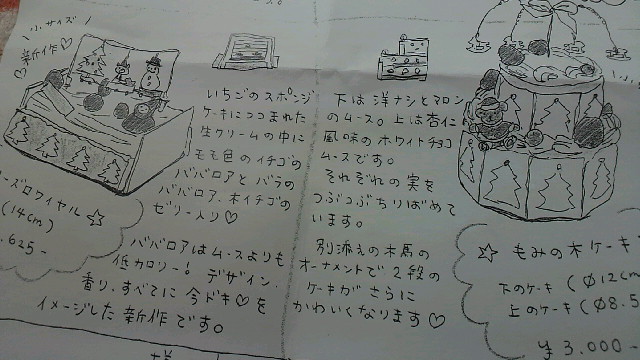 小サイズ
新作♡
いちごのスポンジ
ケーキにつつまれた
生クリームの中に
モモ色のイチゴの
ババロアとバラの
ババロア、木イチゴの
ゼリー入り♡
ババロアはムースよりも
低カロリー！デザイン、
香り、すべてに今ドキ♡を
イメージした新作です。
ーズロワイヤル☆
(14cm)
625-
下は洋ナシとマロン
のムース。上は杏仁
風味のホワイトチョコ
ムースです。
それぞれの実を
つぶつぶちりばめて
います。
別添えの木馬の
オーナメントで2段の
ケーキがさらに
かわいくなります♡
☆もみの木ケーキ
下のケーキ(Ø12cm
上のケーキ(Ø8.5
¥3,000-